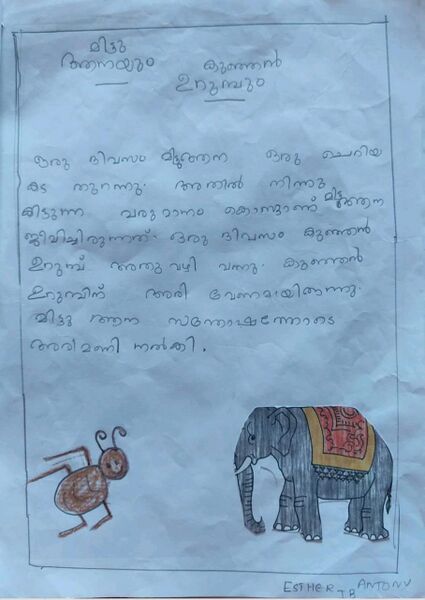 മിട്ടു
ആനയും കുഞ്ഞൻ
ഉറുമ്പും
ഒരു ദിവസം മിട്ടുആന ഒരു ചെറിയ
കട തുറന്നു. അതിൽ നിന്നു
കിട്ടുന്ന വരുമാനം കൊണ്ടാണ് മിട്ടുആന
ജീവിച്ചിരുന്നത്. ഒരു ദിവസം കുഞ്ഞൻ
ഉറുമ്പ് അതു വഴി വന്നു. കുഞ്ഞൻ
ഉറുമ്പിന് അരി വേണമായിരുന്നു.
മിട്ടു ആന സന്തോഷത്തോടെ
അരിമണി നൽകി.
ESTHER ANTONY
IB